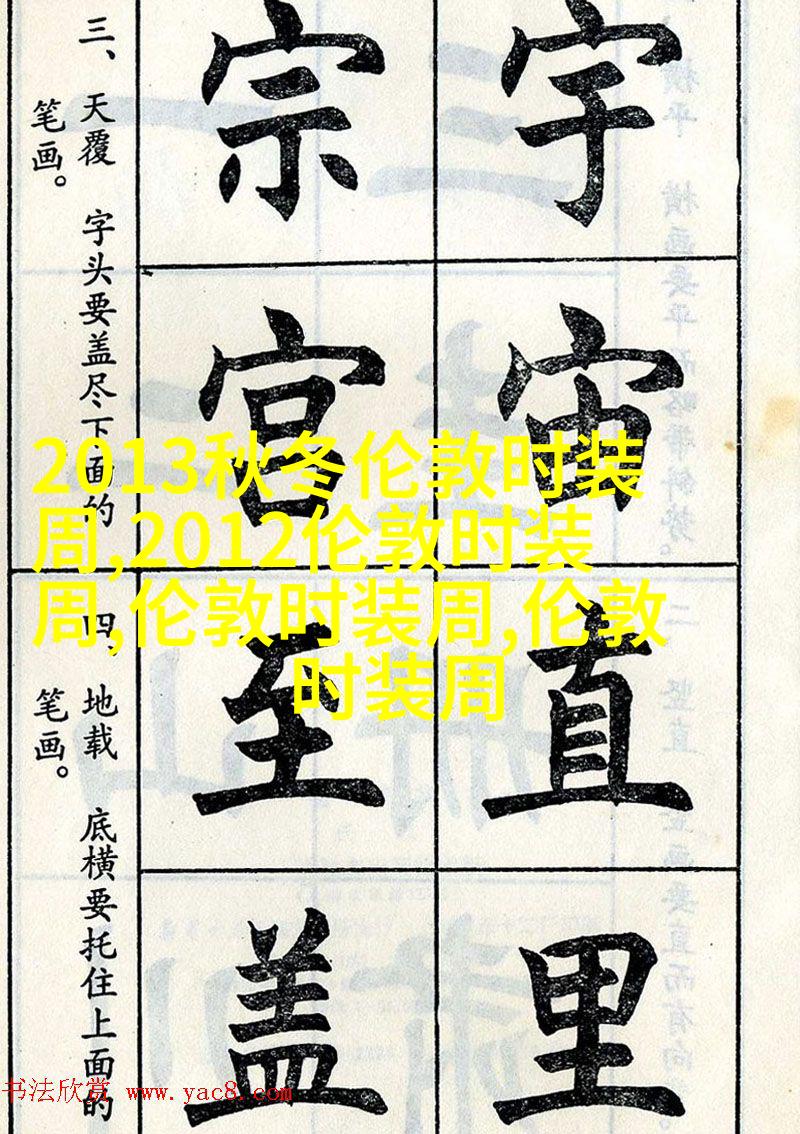 宇
宙
直
里
宗
宫
至
盖
三、天覆 字头要盖尽下面的
笔画。
四、地载 底横要托住上面的
笔画。
2013秋冬伦敦时装
周,2012伦敦时装
周,伦敦时装周,伦敦
时装周
书法欣赏 www.yac8.com